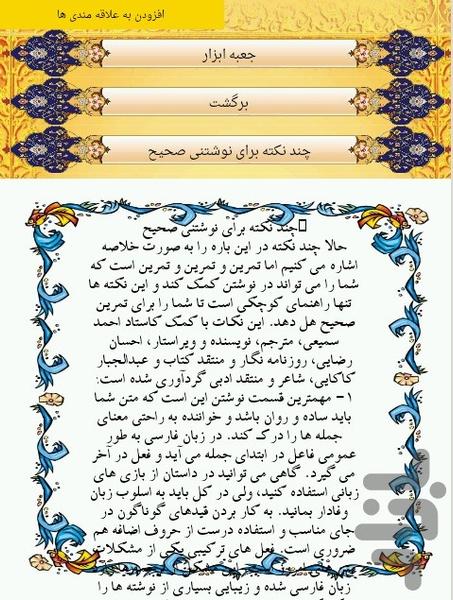 افزودن به علاقه مندی ها
جعبه ابزار
برگشت
چند نکته برای نوشتنی صحیح
چند نکته برای نوشتنی صحیح
حالا چند نکته در این باره را به صورت خلاصه
اشاره می کنیم اما تمرین و تمرین و تمرین است که
شما را می تواند در نوشتن کمک کند و این نکته ها
تنها راهنمای کوچکی است تا شما را برای تمرین
صحیح هل دهد. این نکات با کمک کاستاد احمد
سمیعی، مترجم، نویسنده و ویراستار، احسان
رضایی، روزنامه نگار و منتقد کتاب و عبدالجبار
کاکایی، شاعر و منتقد ادبی گردآوری شده است:
۱- مهمترین قسمت نوشتن این است که متن شما
باید ساده و روان باشد و خواننده به راحتی معنای
جمله ها را درک کند. در زبان فارسی به طور
عمومی فاعل در ابتدای جمله می آید و فعل در آخر
می گیرد. گاهی می توانید در داستان از بازی های
زبانی استفاده کنید، ولی در کل باید به اسلوب زبان
وفادار بمانید. به کار بردن قیدهای گوناگون در
جای مناسب و استفاده درست از حروف اضافه هم
ضروری است. فعل های ترکیبی یکی از مشکلات
زبان فارسی شده و زیبایی بسیاری از نوشته ها را